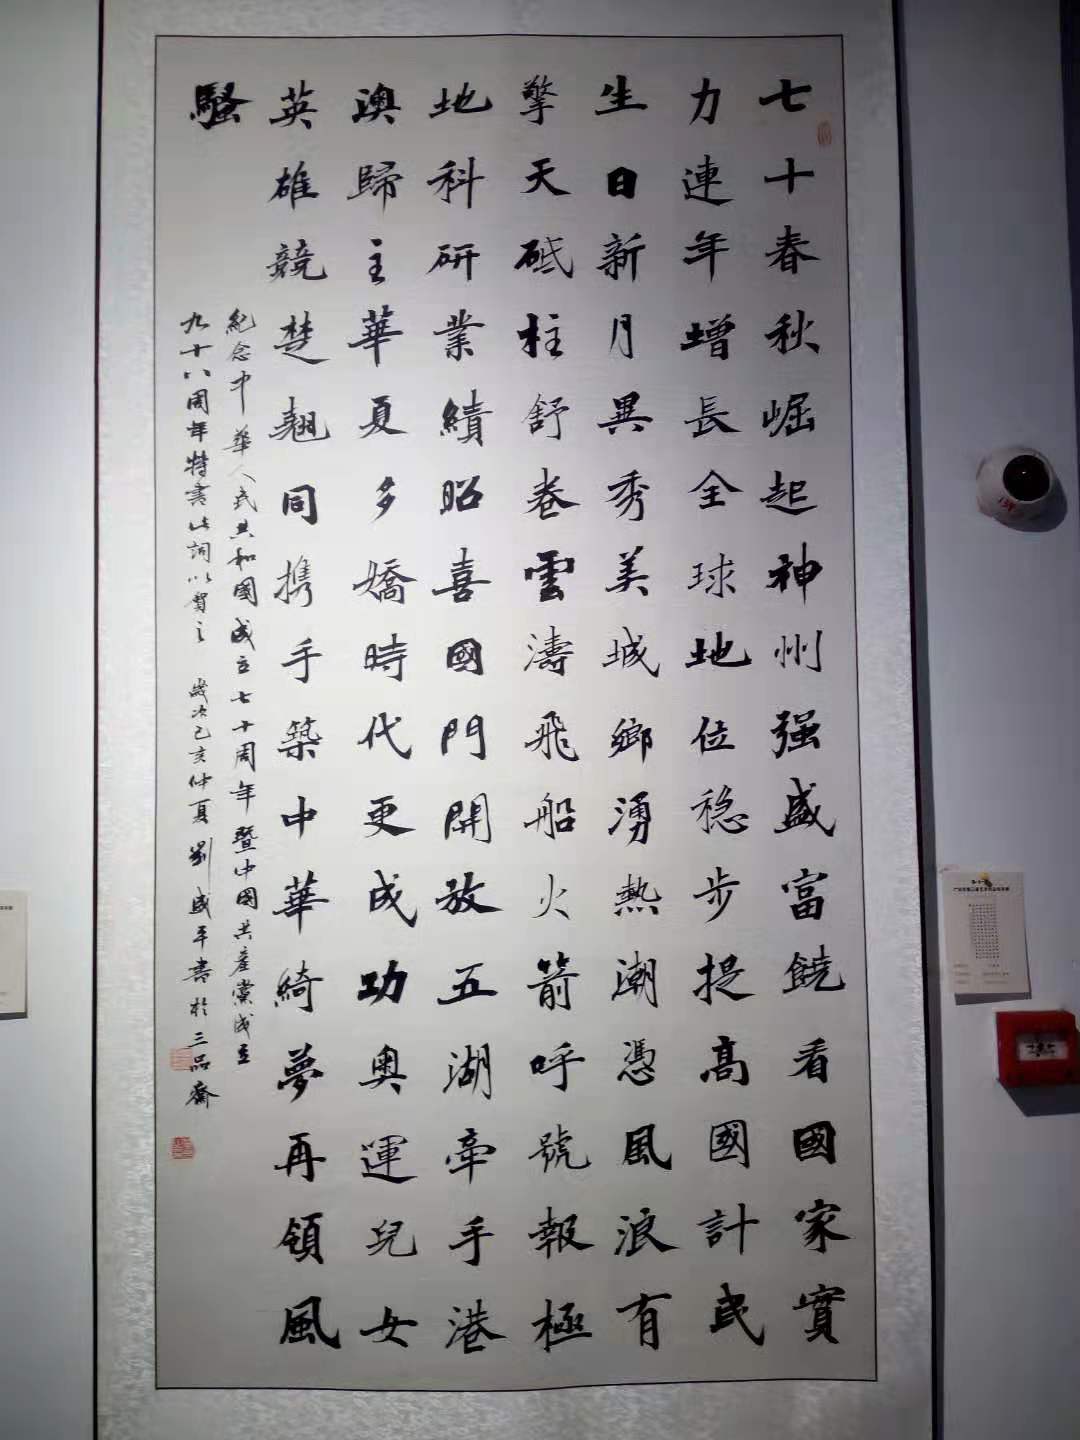 七十春秋崛起神州强盛富饒看國家實
力連年增長全球地位稳步提高國計民
生日新月異秀美城鄉湧熱潮憑風浪有
擎天砥柱舒卷雲濤飛船火箭呼號報極
地科研業績昭喜國門開放五湖牽手港
澳歸主華夏多嬌時代更成功奥運兒女
英雄競楚翹同携手築中華綺夢再領風
騷
紀念中華人民共和國成立七十周年暨中國共産黨成立
九十八周年特書此詞以賀之 歲次己亥仲夏 劉盛平書於三品齋